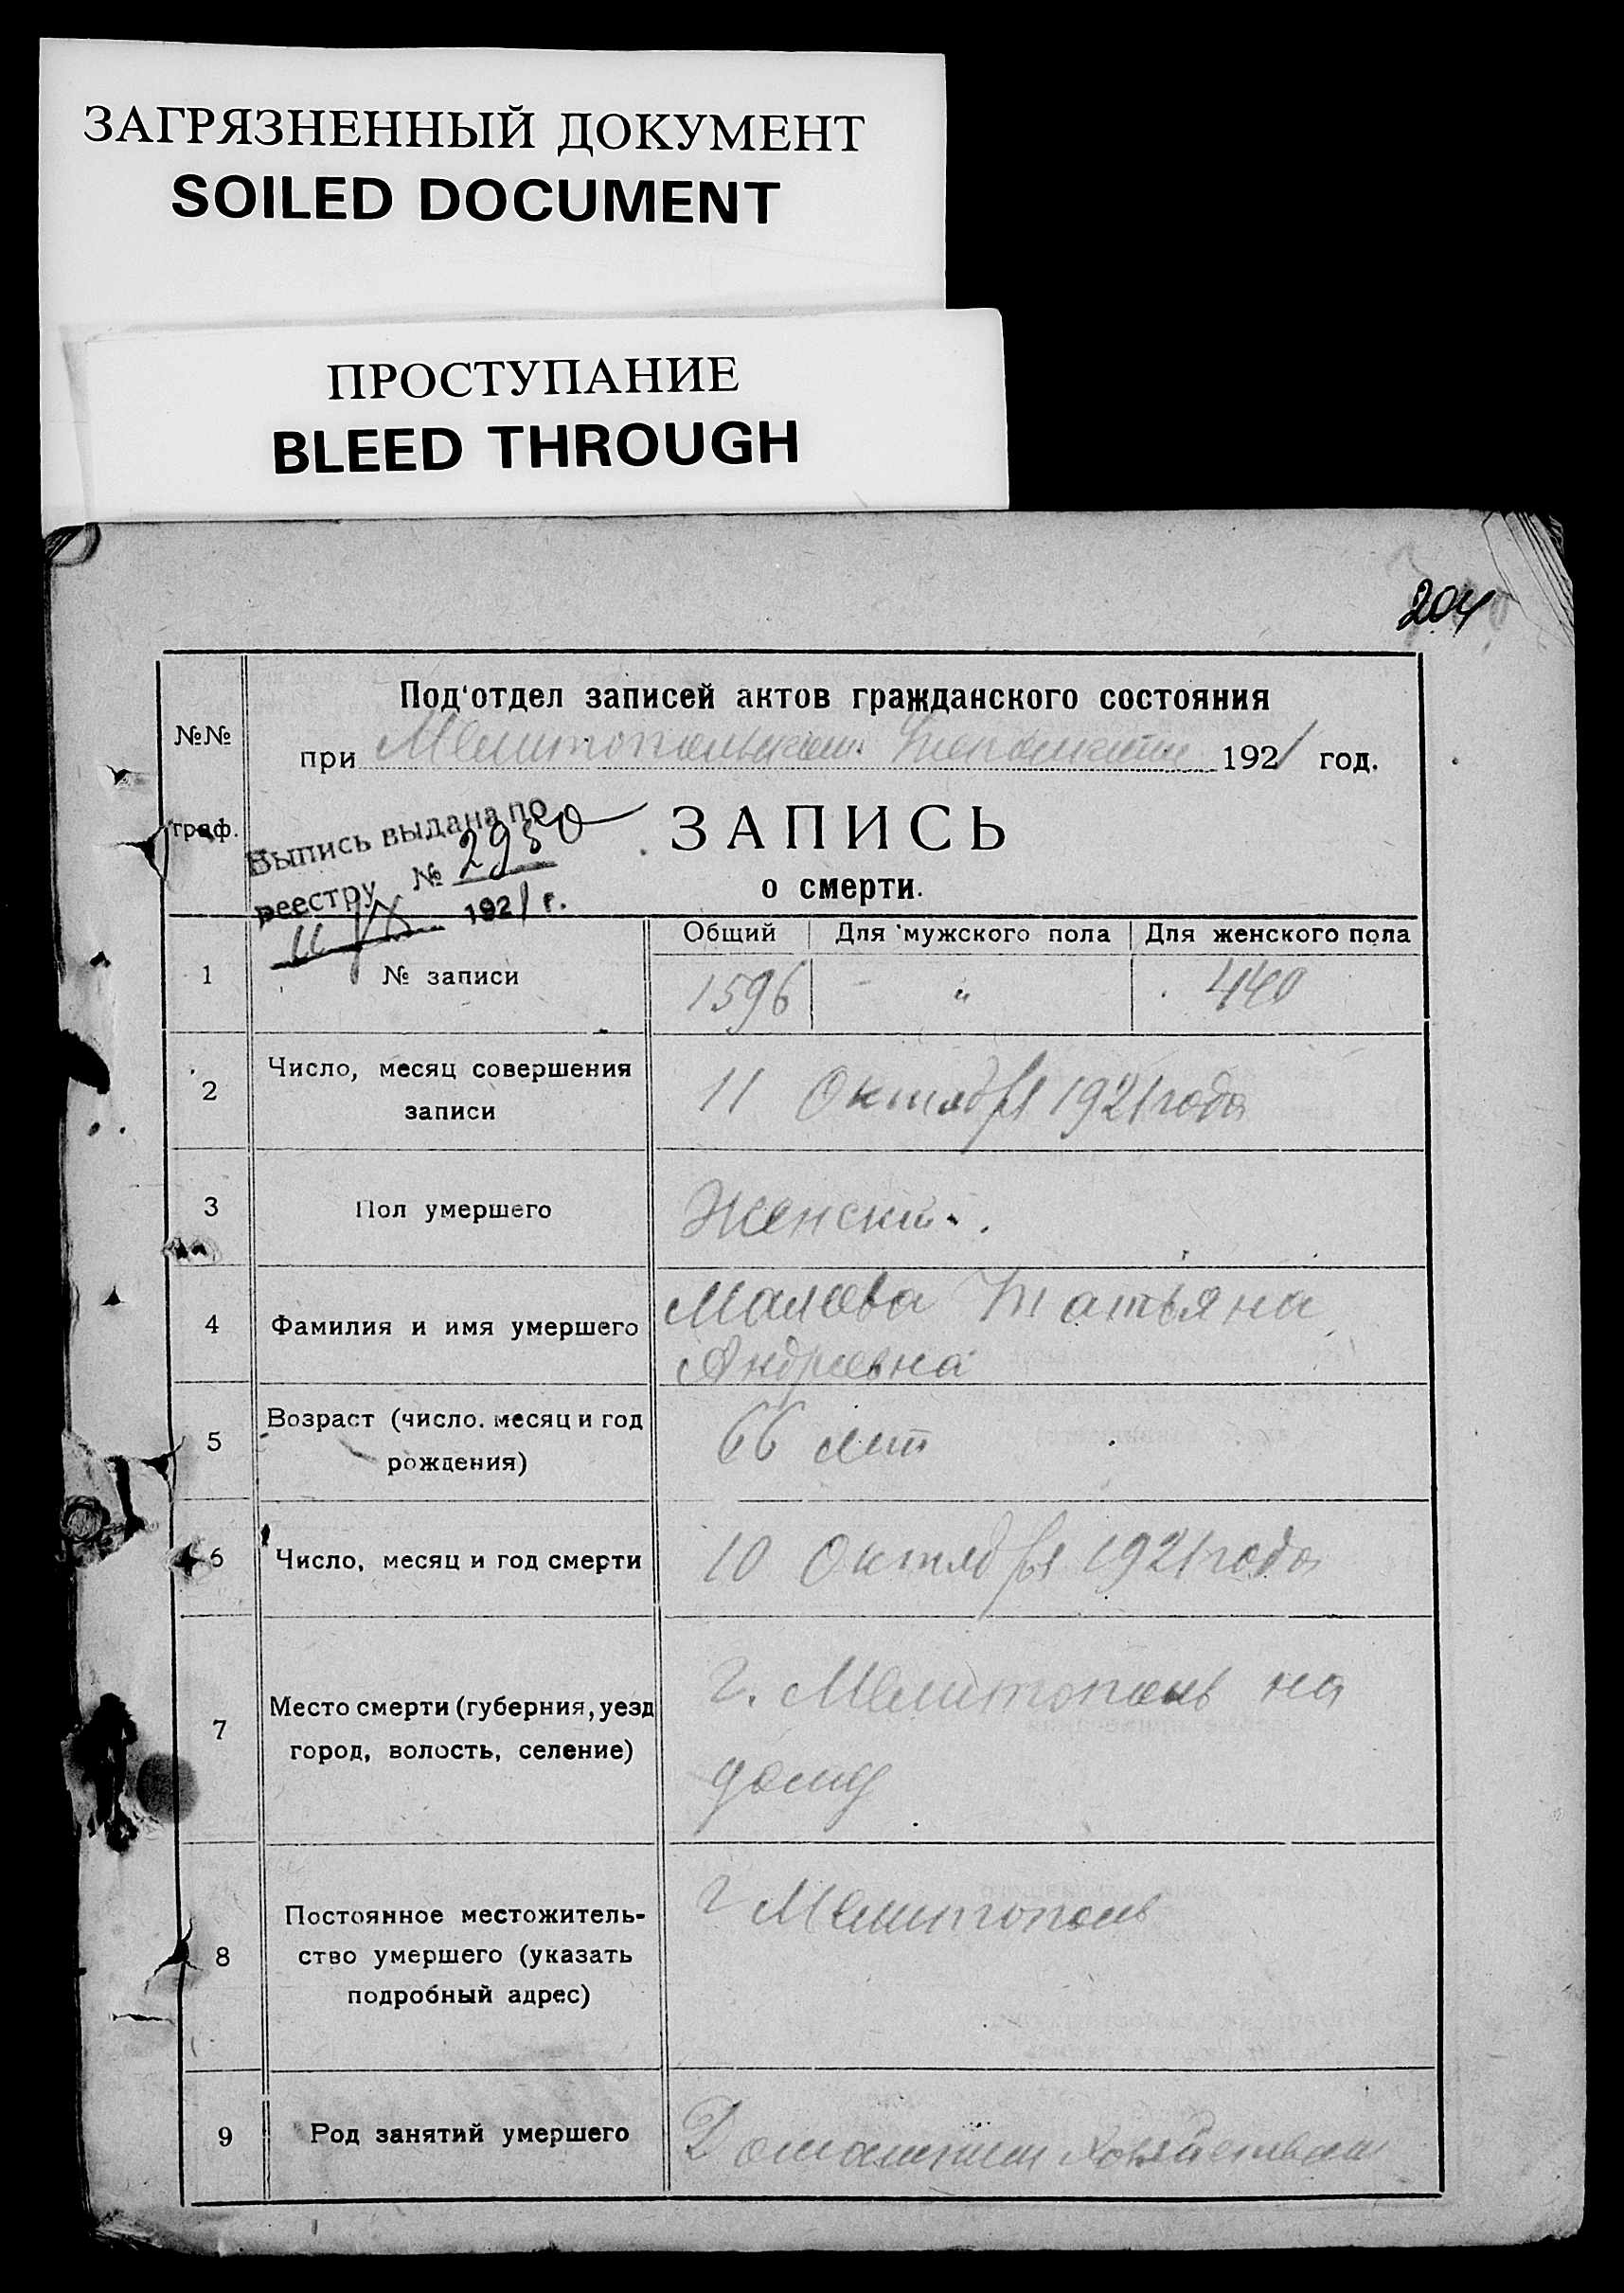 ЗАГРЯЗНЕННЫЙ ДОКУМЕНТ
SOILED DOCUMENT
ПРОСТУПАНИЕ
BLEED THROUGH
204
№№
граф.
Под'отдел записей актов гражданского состояния
при Мелитопольском 1921 год.
Выпись выдана по
реестру № 2950
11/X 1921 г.
ЗАПИСЬ
о смерти.
Общий Для мужского пола Для женского пола
1 № записи 1596 " 440
2 Число, месяц совершения
записи
11 Октября 1921 года
3 Пол умершего Женский.
4 Фамилия и имя умершего
Малева Татьяна
Андреевна
5 Возраст (число. месяц и год
рождения)
66 лет
6 Число, месяц и год смерти 10 Октября 1921 года
7 Место смерти (губерния, уезд
город, волость, селение)
г. Мелитополь на
дому
8 Постоянное местожитель-
ство умершего (указать
подробный адрес)
г Мелитополь
9 Род занятий умершего Домашним хозяйством